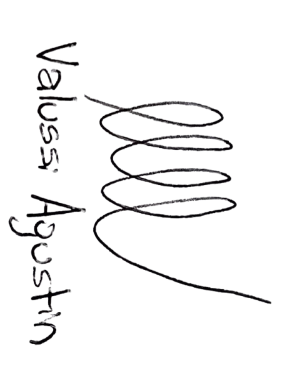 Valussi Agustin